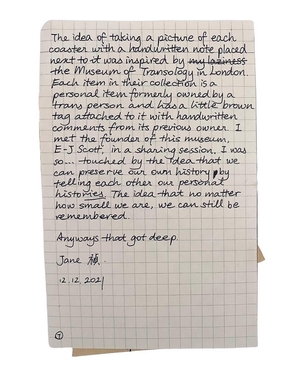 The idea of taking a picture of each
coaster with a handwritten note placed
next to it was inspired by my laziness
the Museum of Transology in London.
Each item in their collection is a
personal item formerly owned by a
trans person and has a little brown
tag attached to it with handwritten
comments from its previous owner. I
met the founder of this museum,
E-J Scott, in a sharing session. I was
so... touched by the idea that we
can preserve our own history by
telling each other our personal
histories. The idea that no matter
how small we are, we can still be
remembered.
Anyways that got deep.
Jane
12.12.2021